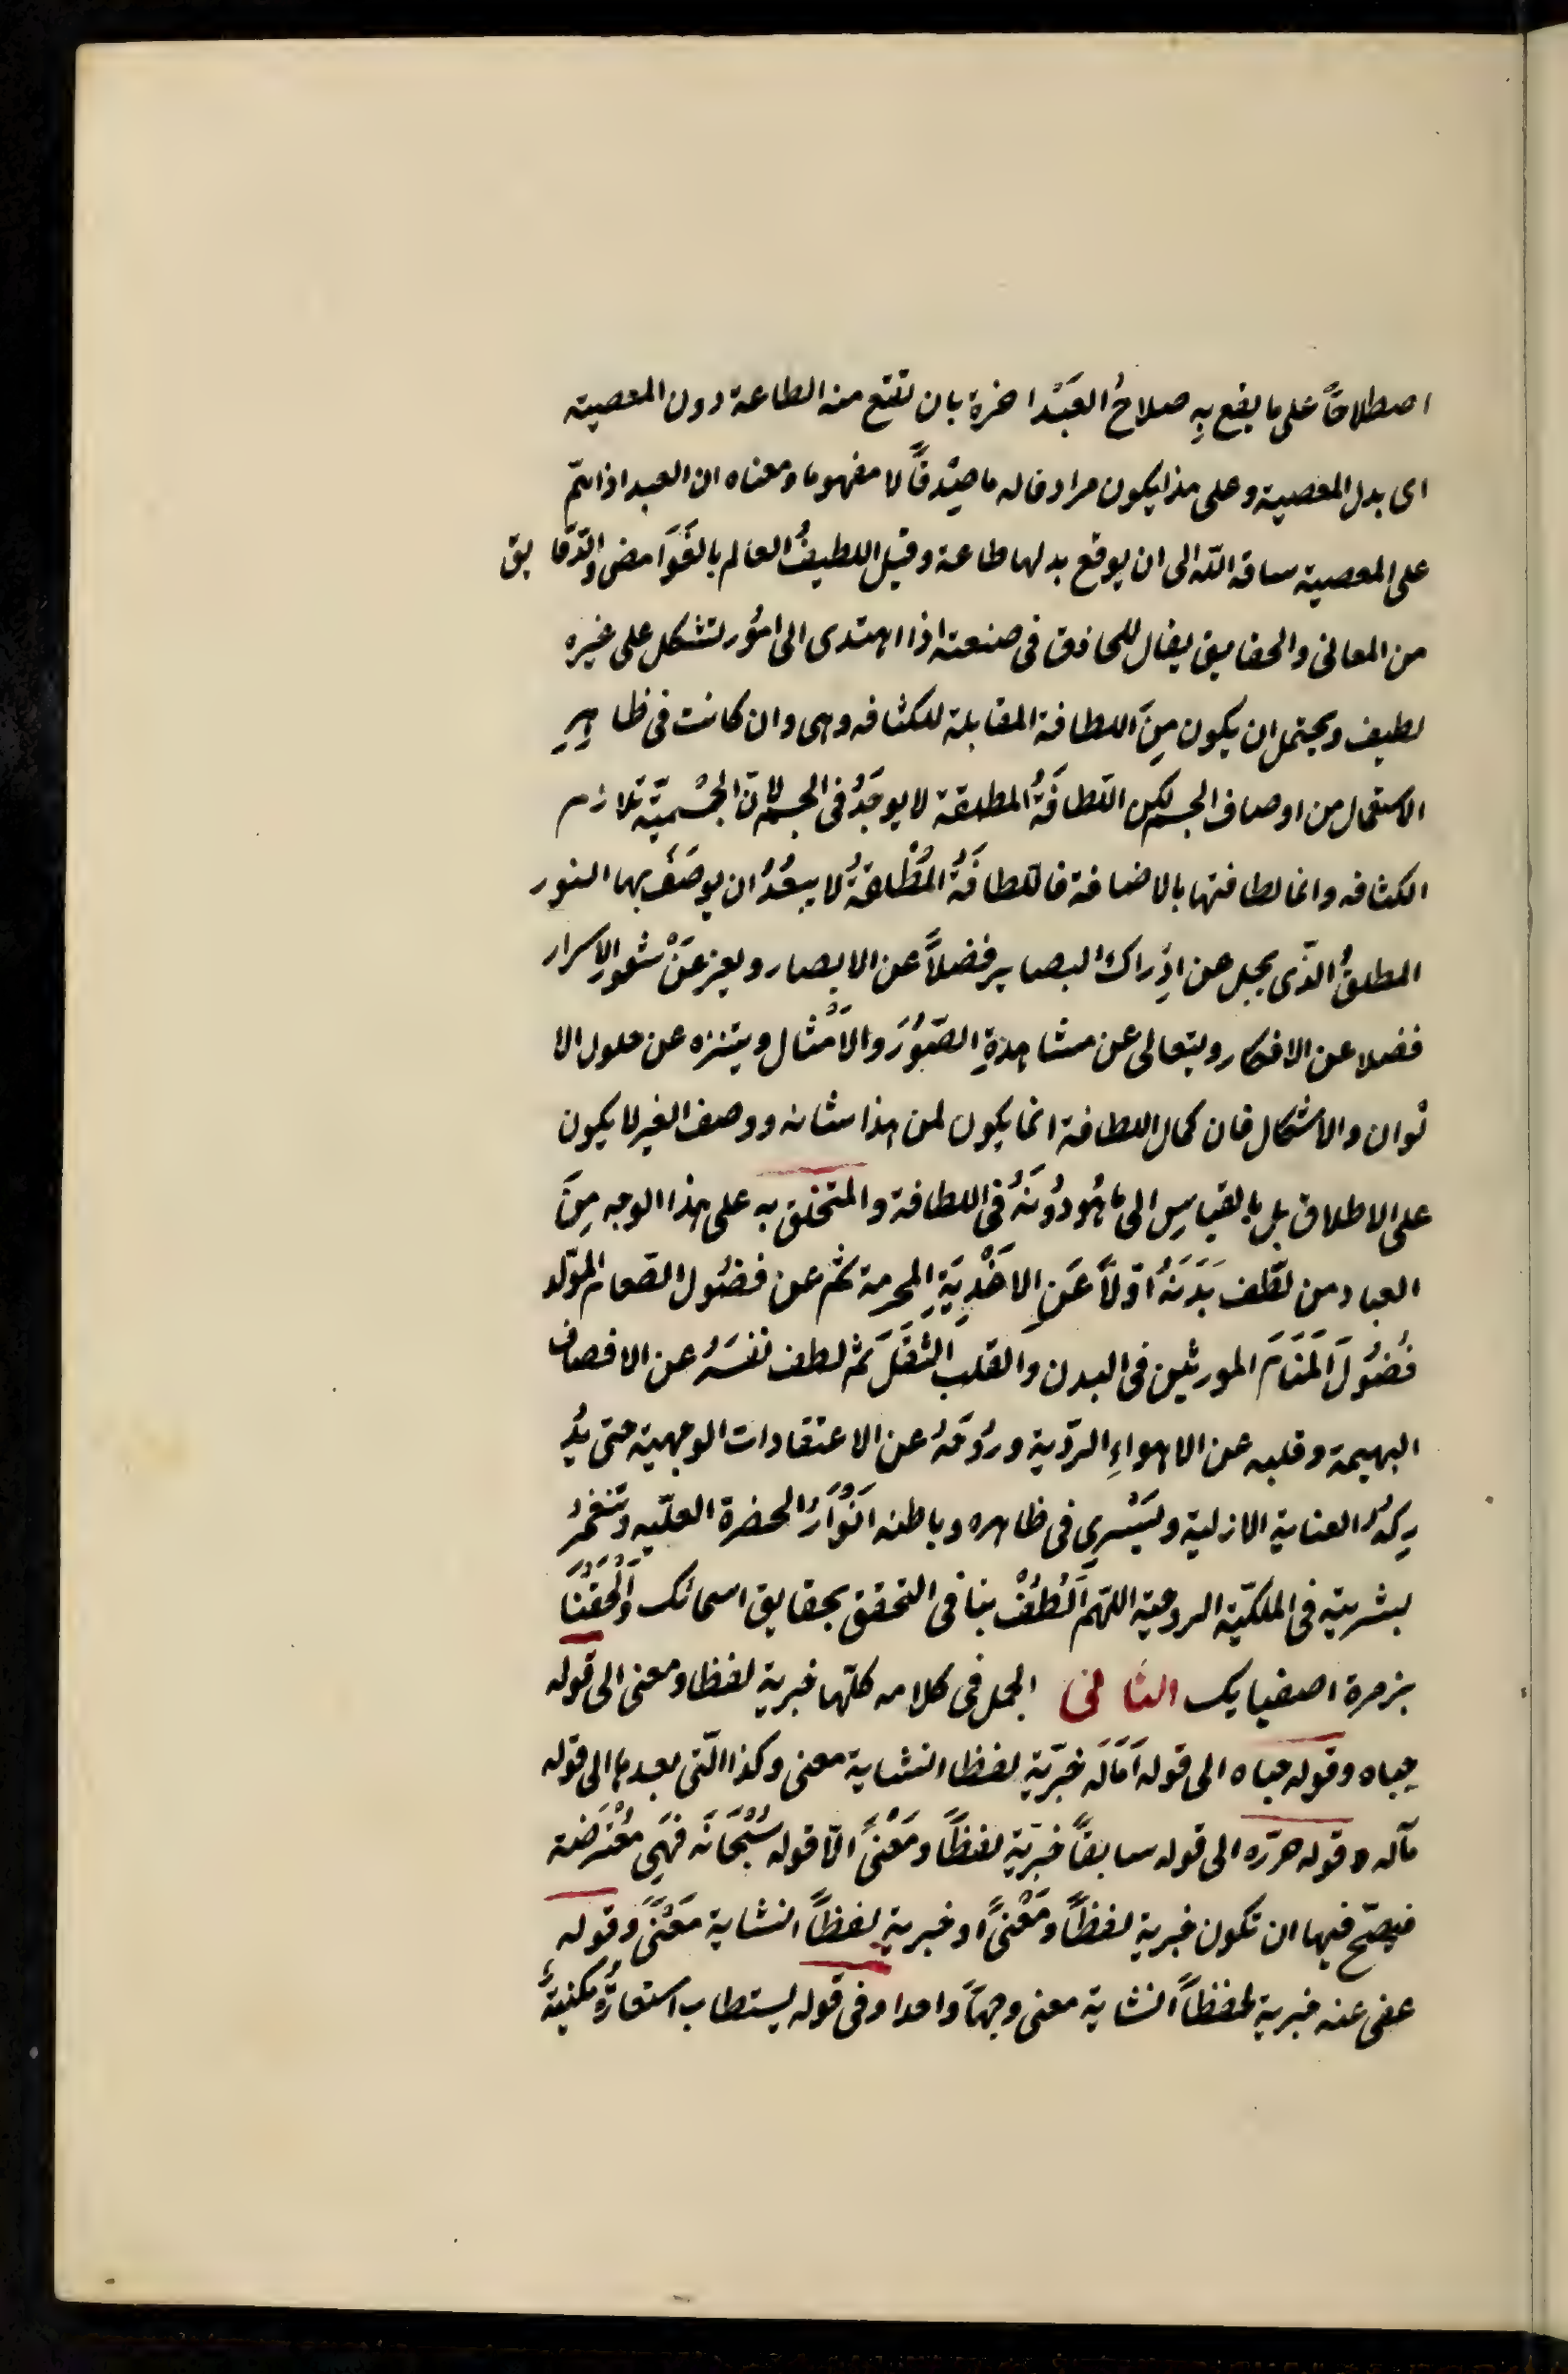 اصطلاحًا على ما يقع بِهِ صلاحُ العَبْد اخرة بان تقع منه الطاعة دون المعصية
اى بدل المعصية وعلى هذا يكون مرادفا له ما صِدْقًا لا مفهوما ومعناه ان العبد اذا اهتم
على المعصية ساقه اللّه الى ان يوقع بدلها طاعة وقيل اللطيفُ العالم بالغَوَامض والدّقايق
من المعانى والحقايق يقال للحاذق فى صنعته اذا اهتدى الى امُور تشكل على غيره
لطيف ويحتمل ان يكون مِنَ اللطافة المقابلة للكثافه وهى وان كانت فى ظاهِرِ
الاستعمال من اوصاف الجسم لكن اللّطافَةُ المطلقة لا يوجَدُ فى الجسم لانّ الجْسمّية تلازم
الكثافه وانما لطافتها بالاضافة فاللطافَةُ المُطْلقةُ لا يبعُدُ ان يوصَفَ بها النور
المطلقُ الذّى يجل عن اِدَراك البصاير فضلاً عن الابصار ويعز عَنْ شعور الاسرار
فضلا عن الافكار ويتعالى عن مشاهدةِ الصّوُرَ والاَمْثال ويتنزه عن حلول الا
لوان والاشكال فان كمال اللطافة انما يكون لمن هذا شانه ووصف الغير لا يكون
على الاطلاق بل بالقياسِ الى ما هُو دُونَهُ فى اللطافة والمتخلق به على هذا الوجه مِنَ
العباد من لطّف بَدَنَهُ اوّلاً عَنِ الاَغْذِيَةِ المحرمة ثم عن فضُول الطّعام المولّد
فُضُولَ المَنَامَ المورثين فى البدن وَالقلب الثقَلَ ثم لطف نفسَهُ عن الاوصاف
البهيمة وقلبه عن الاهواءِ الردّية وروُحَهُ عن الاعتقادات الوهمية حتى يُدْ
رِكهُ العناية الازلية ويَسْرِي فى ظاهره وباطنه اَنْوَارُ الحضرة العلّيه وتنغمرُ
بشريته فى الملكيّة الروحية اللهّم اَلْطُفْ بنا فى التحقق بحقايق اسمائك وَاَلْحِقْنَا
بزمرة اصفيايك الثانى الجمل فى كلامه كلّها خبرية لفظا ومعنى الى قوله
حباه وقوله حباه الى قوله آمَالَه خبرّية لفظا انشاية معنى وكذا الّتى بعدها الى قوله
مآله وقوله حرّره الى قوله سابقاً خبرّية لفظاً ومَعْنىً الاّ قوله سُبْحَانَه فهَىِ معْترضة
فيصحّ فيها ان تكون خبرية لفظاً ومَعْنىً او خبرية لفظاً انشاية مَعْنَىً وقوله
عفى عنه خبرية لفظاً انشاية معنى وجهاً واحدا وفى قوله يستطاب استعارةُ مكنيةُ